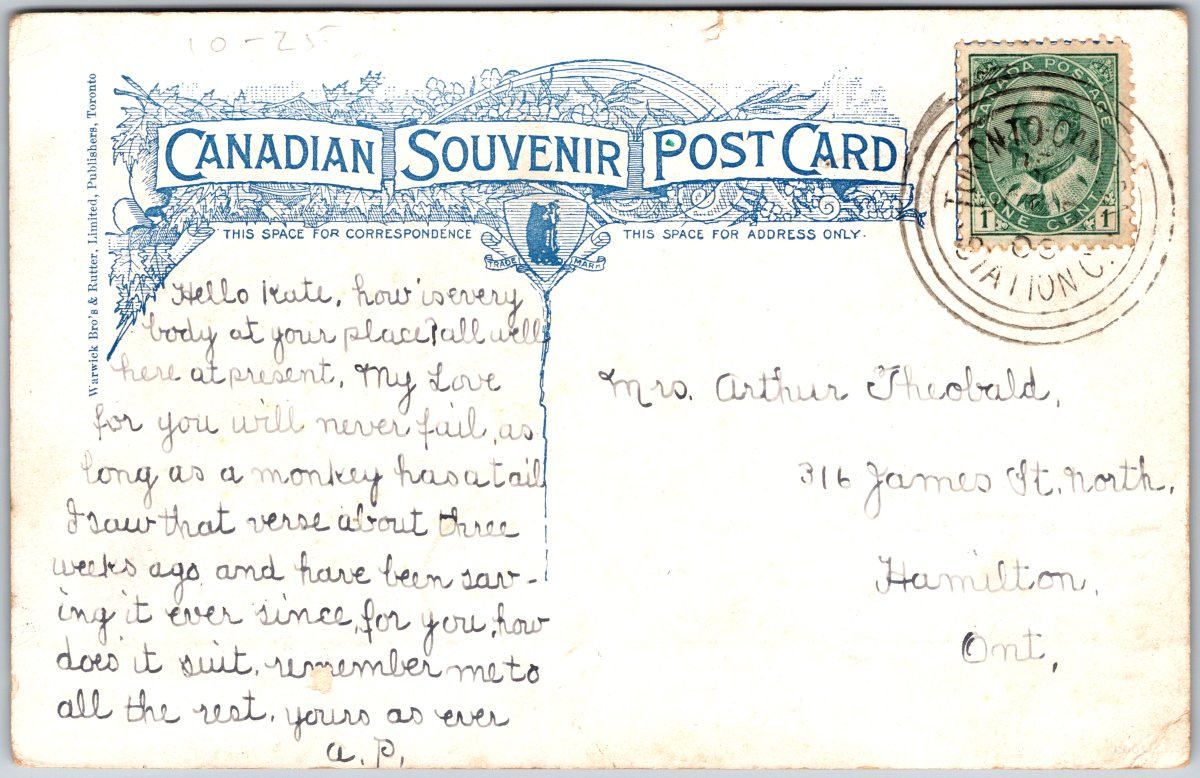 10-25
CANADIAN SOUVENIR POST CARD
THIS SPACE FOR CORRESPONDENCE
THIS SPACE FOR ADDRESS ONLY.
TRADE MARK
Warwick Bro's & Rutter, Limited, Publishers, Toronto
CANADA POSTAGE
1 ONE CENT 1
TORONTO
STATION C.
Hello Kate, how is every
body at your place? all well
here at present, My Love
for you will never fail, as
long as a monkey has a tail
I saw that verse about three
weeks ago and have been sav-
ing it ever since, for you, how
does it suit. remember me to
all the rest. yours as ever
a. P.
Mrs. Arthur Theobald,
316 James St. North,
Hamilton,
Ont,